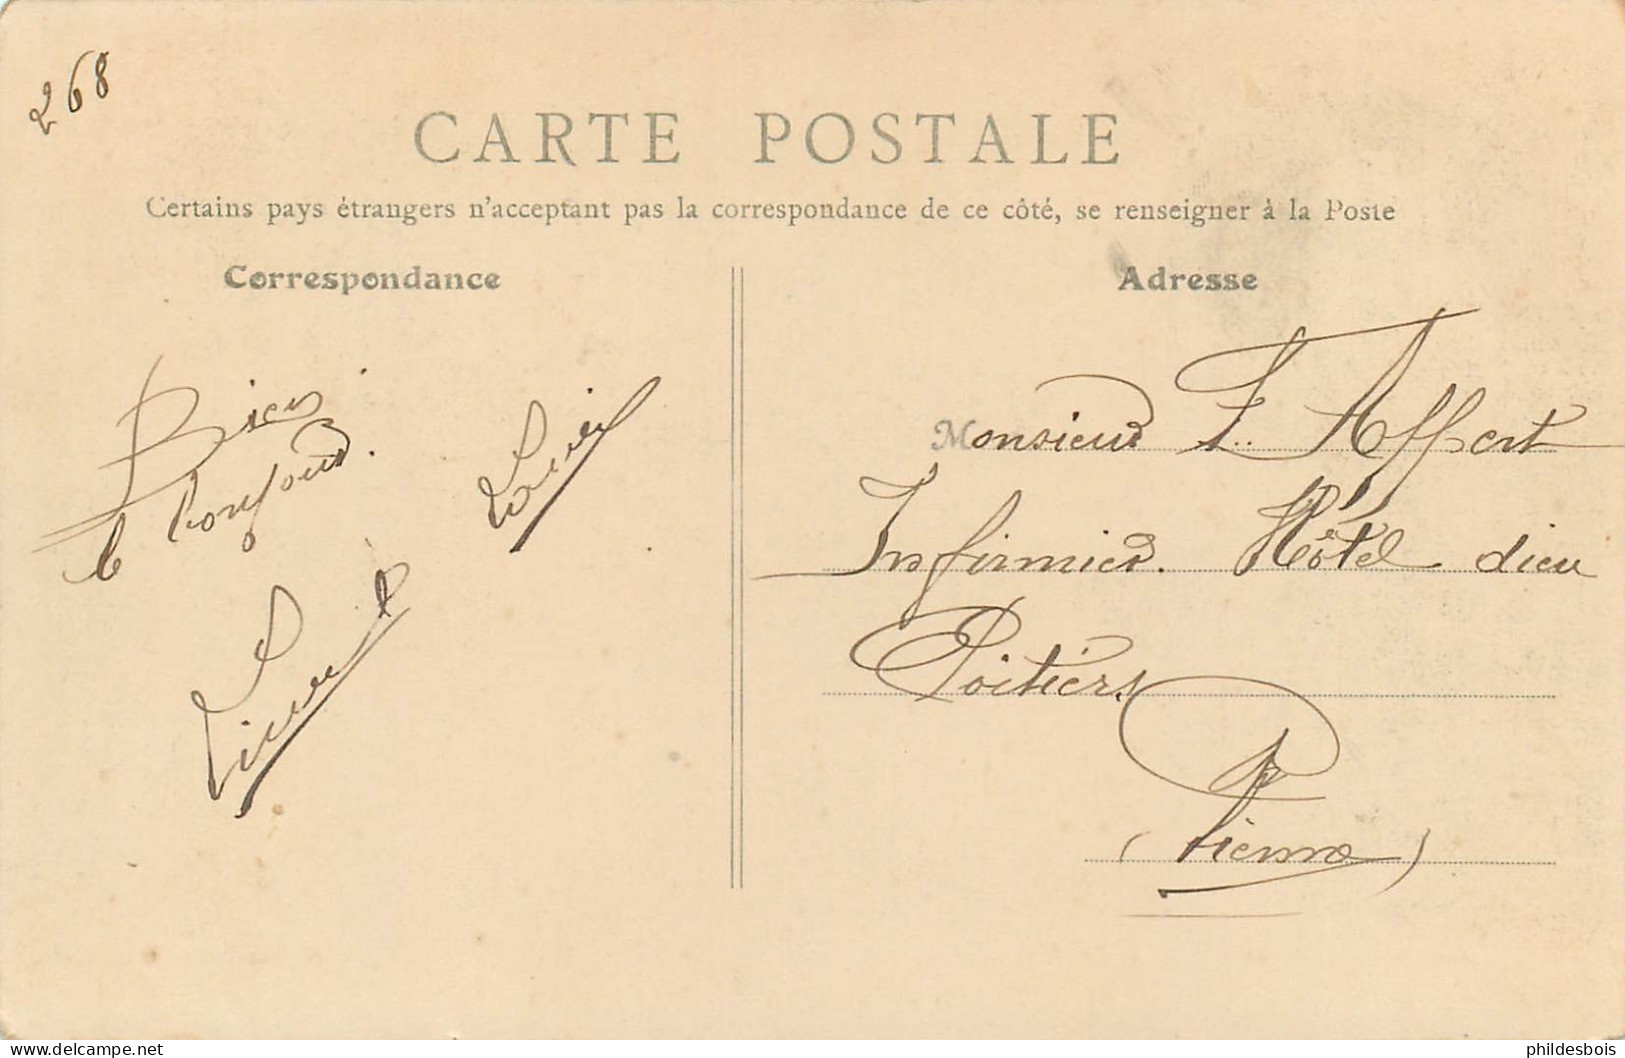 268
CARTE POSTALE
Certains pays étrangers n'acceptant pas la correspondance de ce côté, se renseigner à la Poste
Correspondance
Adresse
Bien
le bonjour.
Monsieur F. Affert
Infirmier. Hôtel dieu
Poitiers
(Vienne)
phildesbois